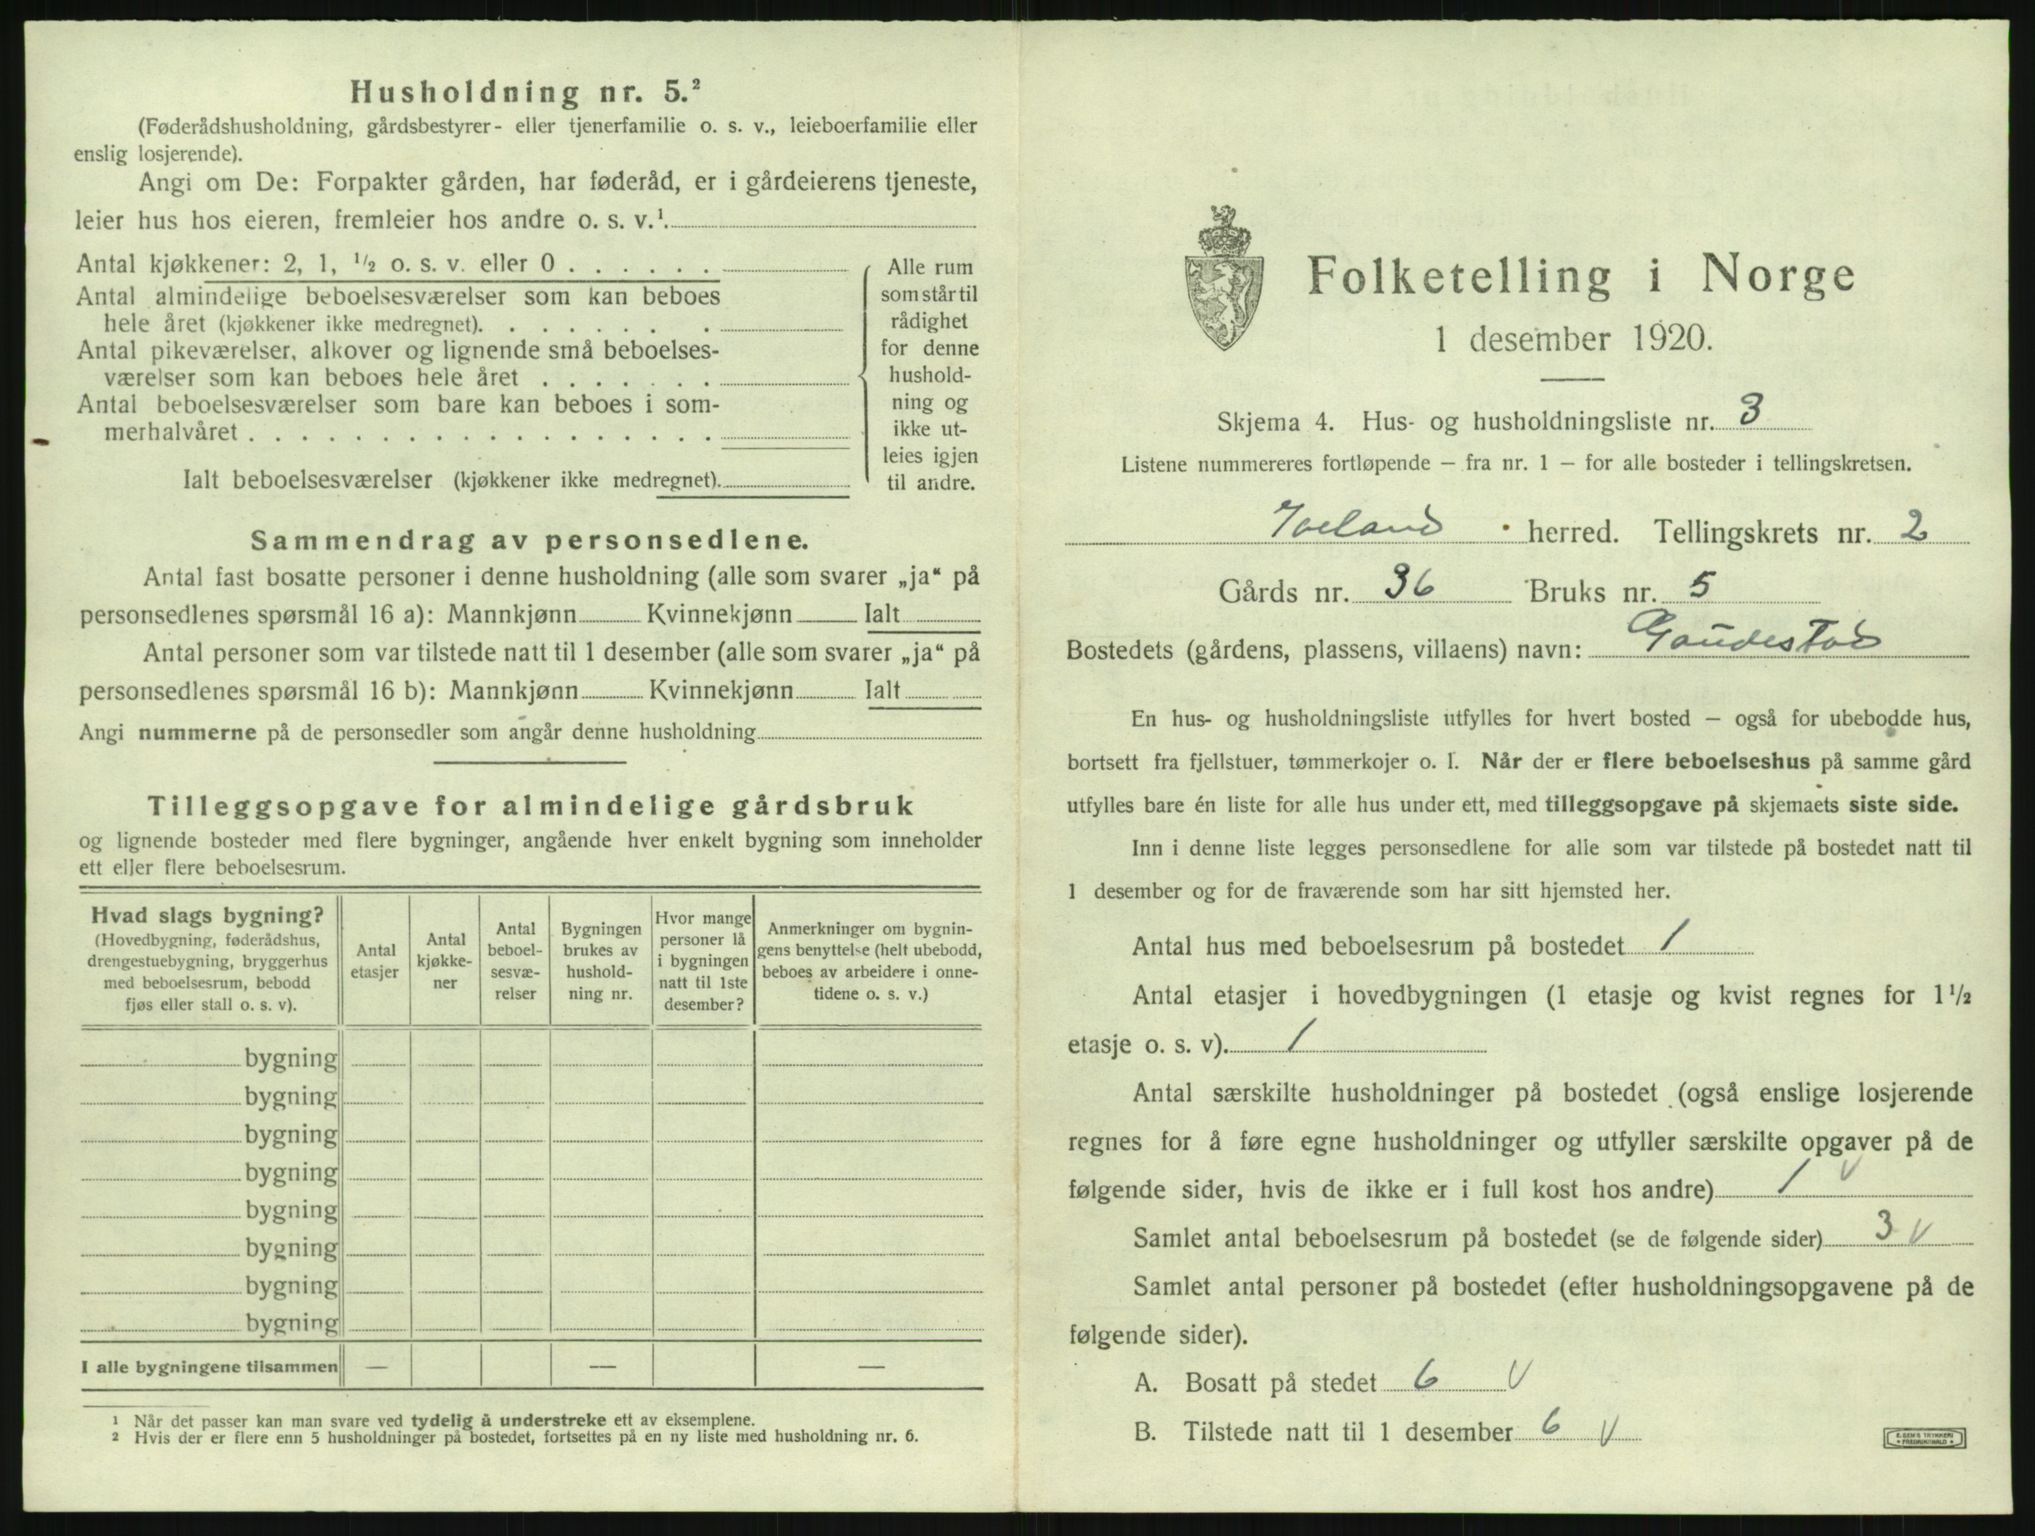 Husholdning nr. 5.²
(Føderådshusholdning, gårdsbestyrer- eller tjenerfamilie o. s. v., leieboerfamilie eller
enslig losjerende).
Angi om De: Forpakter gården, har føderåd, er i gårdeierens tjeneste,
leier hus hos eieren, fremleier hos andre o. s. v.¹.
Antal kjøkkener: 2, 1, ½ o. s. v. eller 0 . . . . . .
Antal almindelige beboelsesværelser som kan beboes
hele året (kjøkkener ikke medregnet). . . . . . . .
Antal pikeværelser, alkover og lignende små beboelses-
værelser som kan beboes hele året . . . . . . .
Antal beboelsesværelser som bare kan beboes i som-
merhalvåret . . . . . . . . . . . . . . . . . .
Ialt beboelsesværelser (kjøkkener ikke medregnet).
Alle rum
som står til
rådighet
for denne
hushold-
ning og
ikke ut-
leies igjen
til andre.
Sammendrag av personsedlene.
Antal fast bosatte personer i denne husholdning (alle som svarer „ja“ på
personsedlenes spørsmål 16 a): Mannkjønn Kvinnekjønn Ialt
Antal personer som var tilstede natt til 1 desember (alle som svarer „ja“ på
personsedlenes spørsmål 16 b): Mannkjønn Kvinnekjønn Ialt
Angi nummerne på de personsedler som angår denne husholdning
Tilleggsopgave for almindelige gårdsbruk
og lignende bosteder med flere bygninger, angående hver enkelt bygning som inneholder
ett eller flere beboelsesrum.
Hvad slags bygning?
(Hovedbygning, føderådshus,
drengestuebygning, bryggerhus
med beboelsesrum, bebodd
fjøs eller stall o. s. v).
Antal
etasjer
Antal
kjøkke-
ner
Antal
beboel-
sesvæ-
relser
Bygningen
brukes av
hushold-
ning nr.
Hvor mange
personer lå
i bygningen
natt til 1ste
desember?
Anmerkninger om bygnin-
gens benyttelse (helt ubebodd,
beboes av arbeidere i onne-
tidene o. s. v.)
bygning
bygning
bygning
bygning
bygning
bygning
bygning
bygning
I alle bygningene tilsammen — — —
¹ Når det passer kan man svare ved tydelig å understreke ett av eksemplene.
² Hvis der er flere enn 5 husholdninger på bostedet, fortsettes på en ny liste med husholdning nr. 6.
Folketelling i Norge
1 desember 1920.
Skjema 4. Hus- og husholdningsliste nr. 3
Listene nummereres fortløpende — fra nr. 1 — for alle bosteder i tellingskretsen.
Iveland herred. Tellingskrets nr. 2
Gårds nr. 36 Bruks nr. 5
Bostedets (gårdens, plassens, villaens) navn: Gaudestad
En hus- og husholdningsliste utfylles for hvert bosted — også for ubebodde hus,
bortsett fra fjellstuer, tømmerkojer o. l. Når der er flere beboelseshus på samme gård
utfylles bare én liste for alle hus under ett, med tilleggsopgave på skjemaets siste side.
Inn i denne liste legges personsedlene for alle som var tilstede på bostedet natt til
1 desember og for de fraværende som har sitt hjemsted her.
Antal hus med beboelsesrum på bostedet 1
Antal etasjer i hovedbygningen (1 etasje og kvist regnes for 1½
etasje o. s. v). 1
Antal særskilte husholdninger på bostedet (også enslige losjerende
regnes for å føre egne husholdninger og utfyller særskilte opgaver på de
følgende sider, hvis de ikke er i full kost hos andre) 1 V
Samlet antal beboelsesrum på bostedet (se de følgende sider) 3 V
Samlet antal personer på bostedet (efter husholdningsopgavene på de
følgende sider).
A. Bosatt på stedet 6 V
B. Tilstede natt til 1 desember 6 V